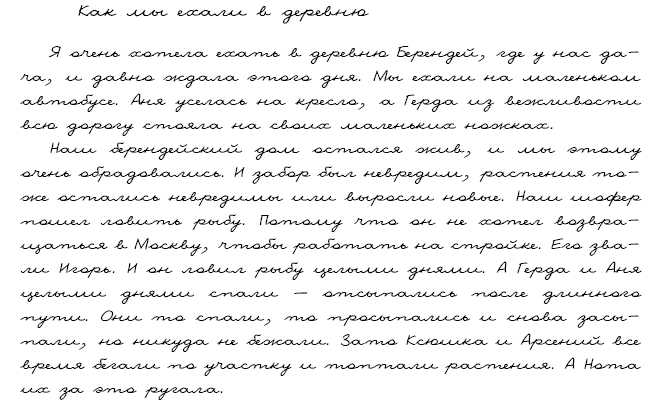 Как мы ехали в деревню
Я очень хотела ехать в деревню Берендей, где у нас да-
ча, и давно ждала этого дня. Мы ехали на маленьком
автобусе. Аня уселась на кресло, а Герда из вежливости
всю дорогу стояла на своих маленьких ножках.
Наш берендейский дом остался жив, и мы этому
очень обрадовались. И забор был невредим, растения то-
же остались невредимы или выросли новые. Наш шофер
пошел ловить рыбу. Потому что он не хотел возвра-
щаться в Москву, чтобы работать на стройке. Его зва-
ли Игорь. И он ловил рыбу целыми днями. А Герда и Аня
целыми днями спали — отсыпались после длинного
пути. Они то спали, то просыпались и снова засы-
пали, но никуда не бежали. Зато Ксюшка и Арсений все
время бегали по участку и топтали растения. А Ната
их за это ругала.